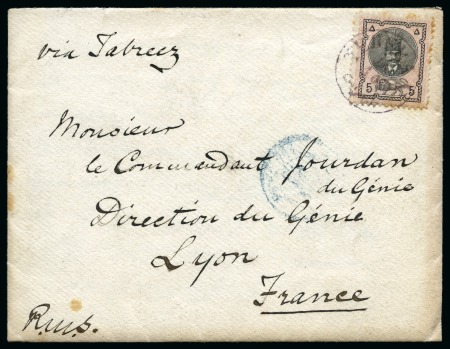 via Tabreez
5 5
Monsieur
le Commandant Jourdan
du Génie
Direction du Génie
Lyon
France
R.u.s.